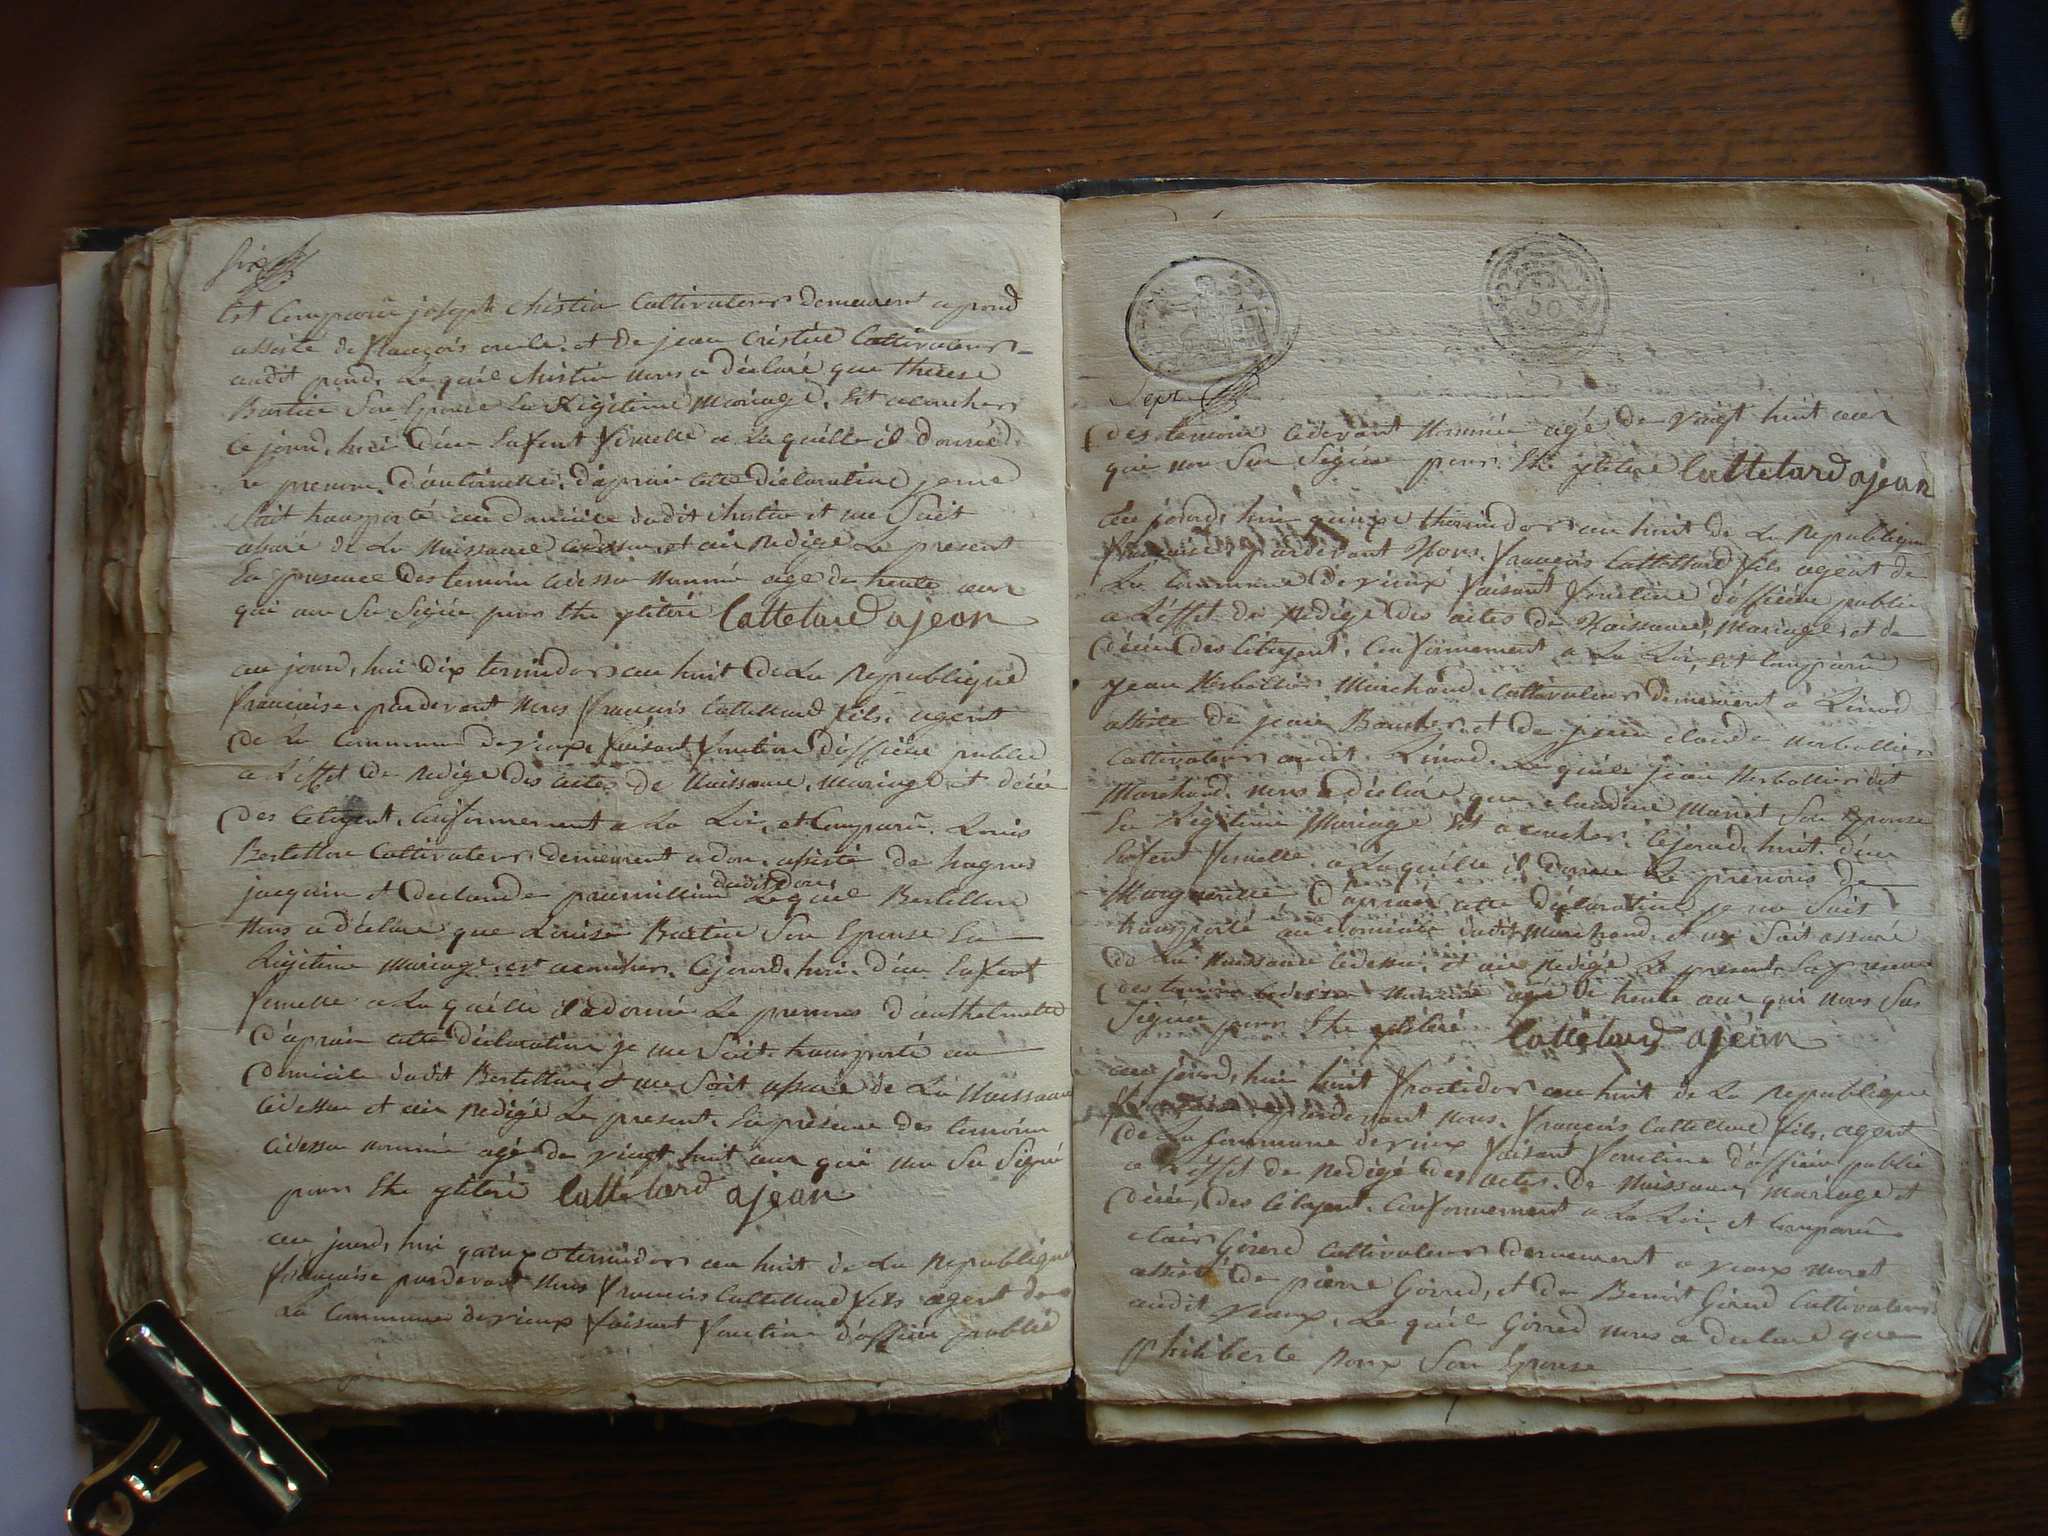 Six
Est Comparu joseph christin Cultivateur demeurant a pond
assisté de françois et de jean Cristin Cultivateur
audit pond. Lequel christin nous a déclaré que therese
Bastin Son Epouse En Légitime Mariage. Est acoucher
ce jourd, hui d'un Enfent femelle a Laquélle il donné
Le prenom d'antoinette. d'aprais cette déclaration je me
Suit transporté au Domicile dudit christin et me Suit
assuré de La Naissance cidessus et ai redigé Le present
En presence des temoins cidessus nommé agé de trente ans
qui non Su Signée pour Etre Cattelard ajean
au jourd, hui dix termidor an huit de La Republique
française. pardevant Nous francois Cattellard fils. agent
de La Commune de rieux faisant fonction d'officier public
a L'éffet de Redigé des actes de Naissance, Mariage et décée
des Citoyent. Conformement a La Loi, et Comparu. Louis
Bertellon Cultivateur demement a don. assisté de hugues
jacquin et declaude dudit don Lequel Bertellon
Nous a déclaré que Louise Bastin Son Epouse En
Légitime Mariage. est acoucher. Cejourd, hui. d'un Enfent
femelle a La quélle il a donné Le prenom d'anthelmette
D'aprais cette déclaration je me Suit transporté au
Domicile dudit Bertellon et me Soit assuré de La Naissance
Cidessu et ai redigé Le present. En présence des temoins
cidessu nommée agé de vingt huit ans qui non Su Signé
pour Etre Cattelard ajean
au jourd, hui quinze termidor an huit de La Republique
française pardevant Nous francois Cattellard fils agent de
La Commune de rieux faisant fonction d'officier public
Sept
des temoins cidevant Nommée agé de vingt huit ans
qui non Su Signée pour Etre Cattelard ajean
au jourd, hui quinze thermidor an huit de La Republique
française, pardevant Nous. françois Cattellard fils agent de
La Commune de rieux faisant fonction d'officier public
a L'éffet de Redigé des actes de Naissance, Mariage, et de
décée des Citoyent. Conformement a La Loi, Est Comparu
jean Marchand. Cultivateur demement a Linod
assité de jean et de pierre claude
Cultivateur audit. Linod. Lequel jean dit
Marchand. nous a déclaré que claudine Son Epouse
En Légitime Mariage Est acoucher. Cejourd, huit. d'un
Enfent femelle. a Laquélle il donne Le prenom de
Marguerite D'aprais cette déclaration je me Suit
transporté au domicile dudit Marchand. et me Soit assuré
de La Naissance Cidessu. et ai redigé Le present, En presence
des temoins Cidessu nommée agé de trente ans qui nons Su
Signée pour Etre Cattelard ajean
au jourd, hui huit fructidor an huit de La Republique
française, pardevant nous. françois Cattellard fils, agent
de La Commune de rieux faisant fonction d'officier public
a L'éffet de Redigé des actes. de Naissance, Mariage et
décée, des Citoyent. Conformement a La Loi, et Comparu
clair Girerd Cultivateur demement a
assisté de pierre Girerd, et de Benoit Girerd Cultivateur
audit Lequél Girerd nous a declaré que
Philiberte Son Epouse